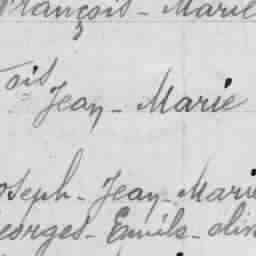 François - Marie
ois
Jean - Marie
oseph - Jean - Marie
eorges - Emile - oliv